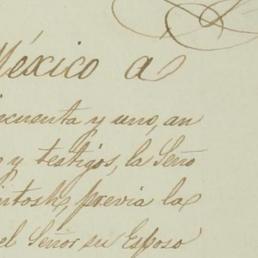 México a
incuenta y uno, an
o y testigos, la Seño
intosh, previa la
el Señor su Esposo